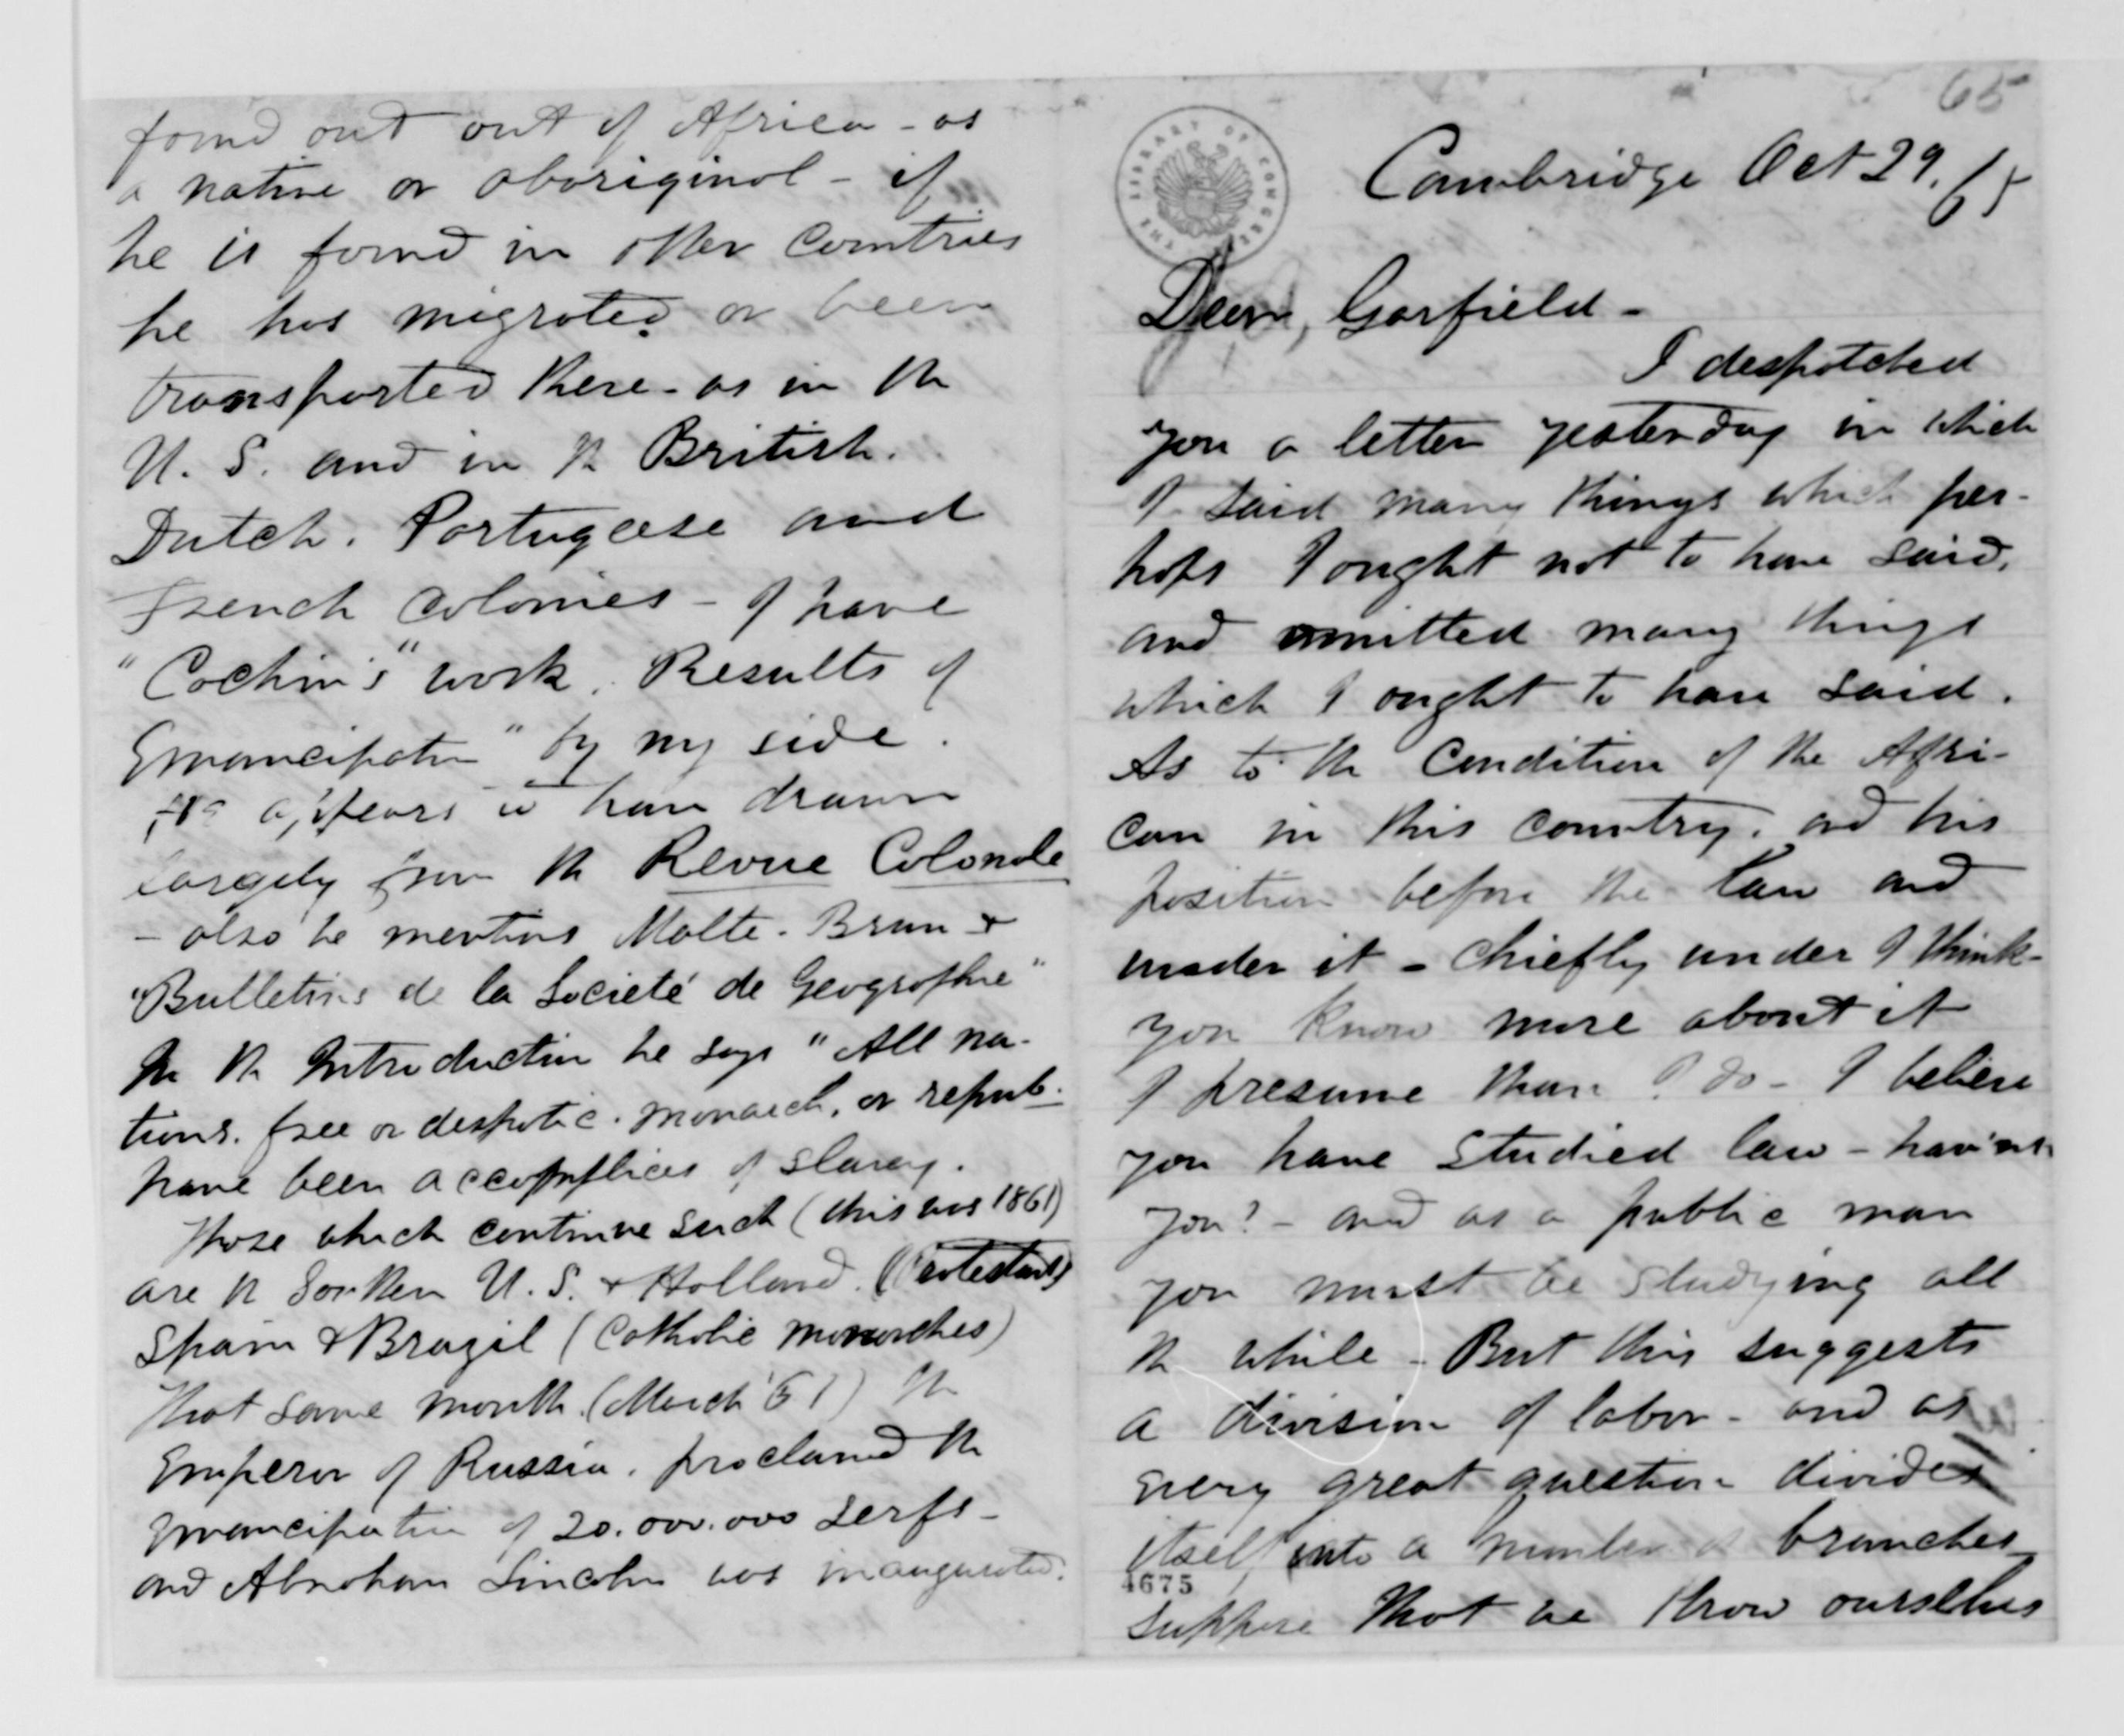 65
Cambridge Oct 29. 65
THE LIBRARY OF CONGRESS
Dear, Garfield -
I despatched
you a letter yesterday in which
I said many things which per-
haps I ought not to have said,
and omitted many things
which I ought to have said.
As to the condition of the Afri-
can in this country, and his
position before the law and
under it - chiefly under I think -
you know more about it
I presume than I do - I believe
you have studied law - hav'nt
you? - and as a public man
you must be studying all
the while - But this suggests
a division of labor - and as
every great question divides
itself into a number of branches
4675
suppose that we throw ourselves
found out out of Africa - as
a native or aboriginal - if
he is found in other countries
he has migrated or been
transported there - as in the
U. S. and in the British.
Dutch. Portugeese and
French colonies - I have
"Cochin's" work. Results of
Emancipation" by my side.
He appears to have drawn
largely from the Revue Coloniale
- also he mentions Malte-Brun &
"Bulletins de la Societé de Geographie"
In the Introduction he says "All na-
tions. free or despotic. monarch. or repub.
have been accomplices of slavery.
Those which continue such (this was 1861)
are the Southern U. S. & Holland. (Protestant)
Spain & Brazil (Catholic monarchies)
That same month (March '61) the
Emperor of Russia. proclamed the
Emancipation of 20.000.000 serfs -
and Abraham Lincoln was inaugurated.